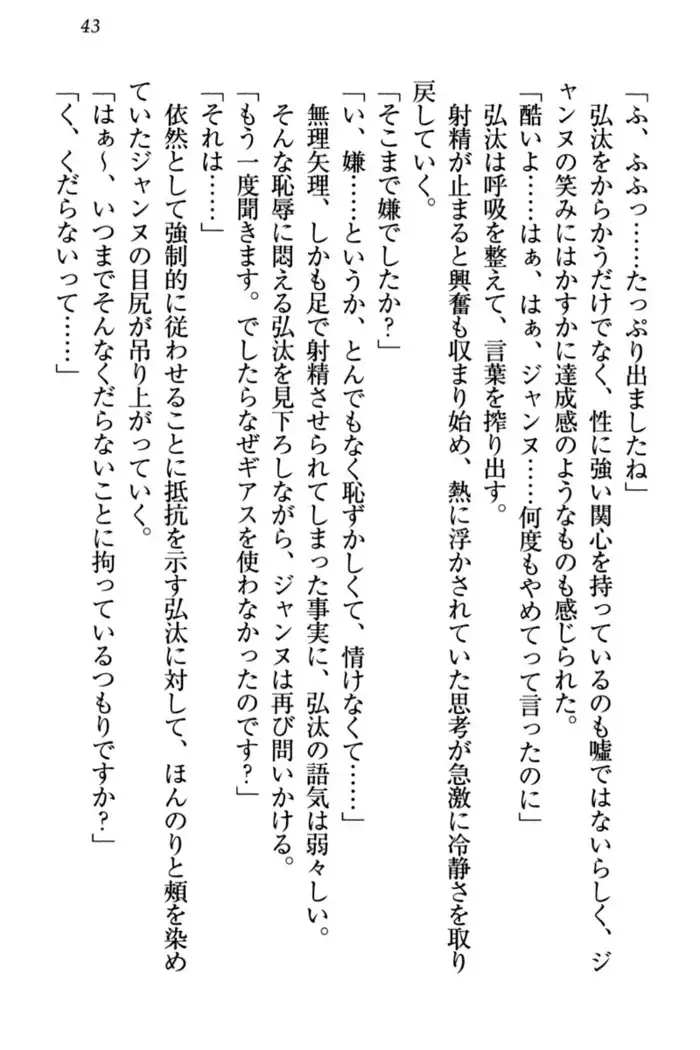 43
「ふ、ふふっ……たっぷり出ましたね」
弘汰をからかうだけでなく、性に強い関心を持っているのも嘘ではないらしく、ジ
ャンヌの笑みにはかすかに達成感のようなものも感じられた。
「酷いよ……はぁ、はぁ、ジャンヌ……何度もやめてって言ったのに」
弘汰は呼吸を整えて、言葉を搾り出す。
射精が止まると興奮も収まり始め、熱に浮かされていた思考が急激に冷静さを取り
戻していく。
「そこまで嫌でしたか？」
「い、嫌……というか、とんでもなく恥ずかしくて、情けなくて……」
無理矢理、しかも足で射精させられてしまった事実に、弘汰の語気は弱々しい。
そんな恥辱に悶える弘汰を見下ろしながら、ジャンヌは再び問いかける。
「もう一度聞きます。でしたらなぜギアスを使わなかったのです？」
「それは……」
依然として強制的に従わせることに抵抗を示す弘汰に対して、ほんのりと頰を染め
ていたジャンヌの目尻が吊り上がっていく。
「はぁ～、いつまでそんなくだらないことに拘っているつもりですか？」
「く、くだらないって……」